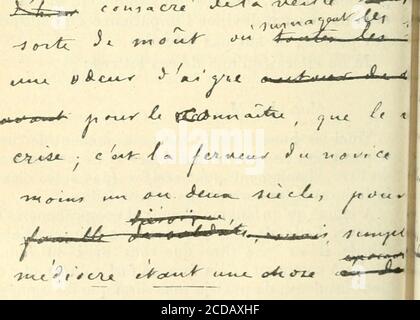 consacré de la veille
surnagent les
sorte de moût où toutes les
une odeur d'aigre autour de
avant pour le reconnaître, que le
crise ; c'est la ferveur du novice
moins un ou deux siècles, pour
héroïque,
famille de soldats, mais, simple
médiocre étant une chose
alamy
2CDAXHF